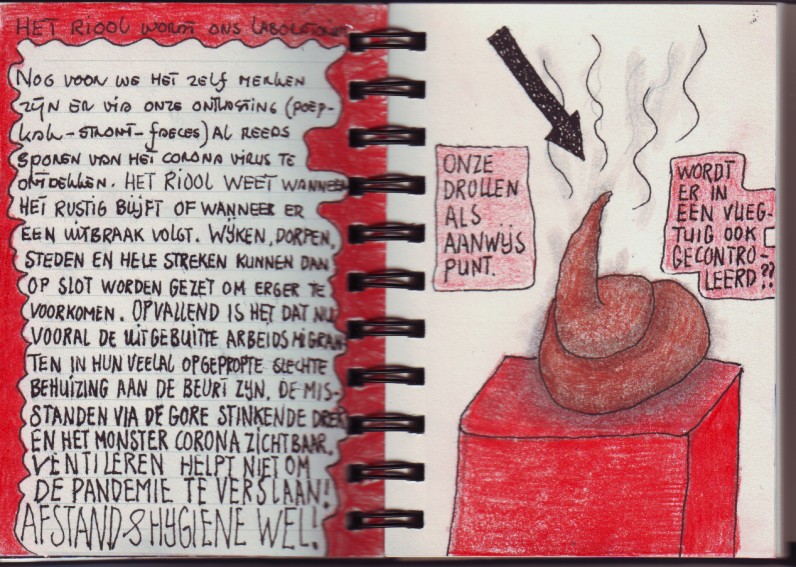 HET RIOOL WORDT ONS LABORATORIUM
NOG VOOR WE HET ZELF MERKEN
ZIJN ER VIA ONZE ONTLASTING (POEP-
KAK-STRONT-FAECES) AL REEDS
SPOREN VAN HET CORONA VIRUS TE
ONTDEKKEN. HET RIOOL WEET WANNEER
HET RUSTIG BLIJFT OF WANNEER ER
EEN UITBRAAK VOLGT. WIJKEN, DORPEN,
STEDEN EN HELE STREKEN KUNNEN DAN
OP SLOT WORDEN GEZET OM ERGER TE
VOORKOMEN. OPVALLEND IS HET DAT NU
VOORAL DE UITGEBUITTE ARBEIDSMIGRAN-
TEN IN HUN VEELAL OPGEPROPTE SLECHTE
BEHUIZING AAN DE BEURT ZIJN, DE MIS-
STANDEN VIA DE GORE STINKENDE DREK
EN HET MONSTER CORONA ZICHTBAAR.
VENTILEREN HELPT NIET OM
DE PANDEMIE TE VERSLAAN!
AFSTAND & HYGIENE WEL!
ONZE
DROLLEN
ALS
AANWIJS
PUNT.
WORDT
ER IN
EEN VLIEG-
TUIG OOK
GECONTRO-
LEERD??